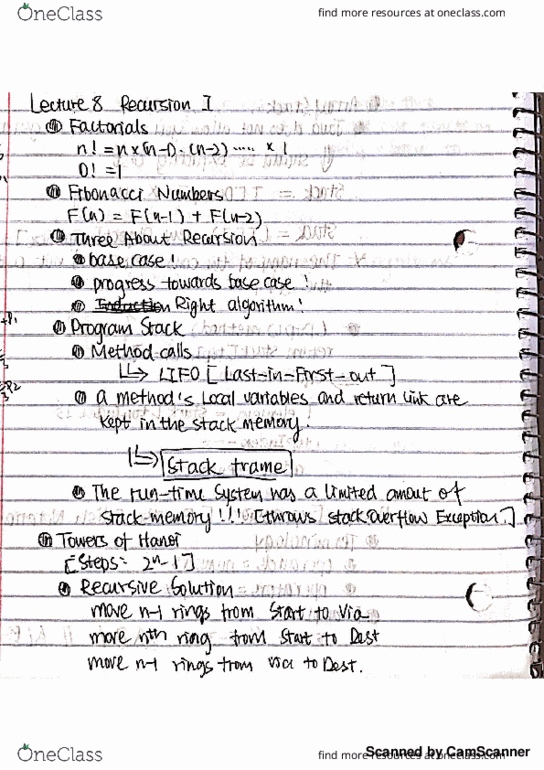 OneClass
find more resources at oneclass.com
Lecture 8 Recursion I
Factorials
n! = n x (n-1) · (n-2) ..... x 1
0! = 1
Fibonacci Numbers
F(n) = F(n-1) + F(n-2)
Three About Recursion
base case!
progress towards base case!
Induction Right algorithm!
Program Stack
Method calls
↳ LIFO [Last-in-First-out]
A method's Local variables and return link are
kept in the stack memory.
↳ Stack frame
The run-time System has a limited amout of
stack-memory!!! [throws stack overflow Exception.]
Towers of Hanoi
[Steps: 2ⁿ-1]
Recursive Solution
move n-1 rings from Start to Via
move nth ring from Start to Dest
move n-1 rings from via to Dest.
OneClass
find more resources at oneclass.com
Scanned by CamScanner